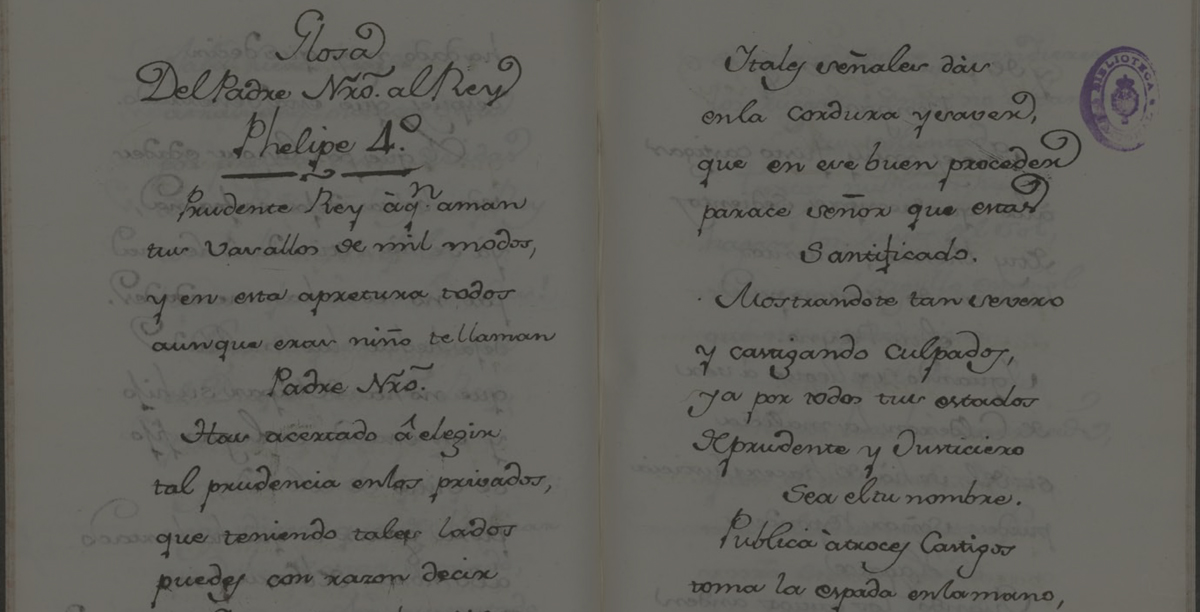 Glosa
Del Padre Nrõ. al Rey
Phelipe 4.º
Prudente Rey à q.n aman
tus vasallos de mil modos,
y en esta apretura todos
aunque eras niño te llaman
Padre Nrõ.
Has acertado â elegir
tal prudencia en los privados,
que teniendo tales lados
puedes con razon decir
I tales señales dàs
en la cordura y saver,
que en ese buen proceder
parace señor que estas
Santificado.
Mostrandote tan severo
y castigando culpados,
ya por todos tus estados
de prudente y Justiciero
Sea el tu nombre.
Publica àtroces Castigos
toma la espada en la mano,
BIBLIOTECA